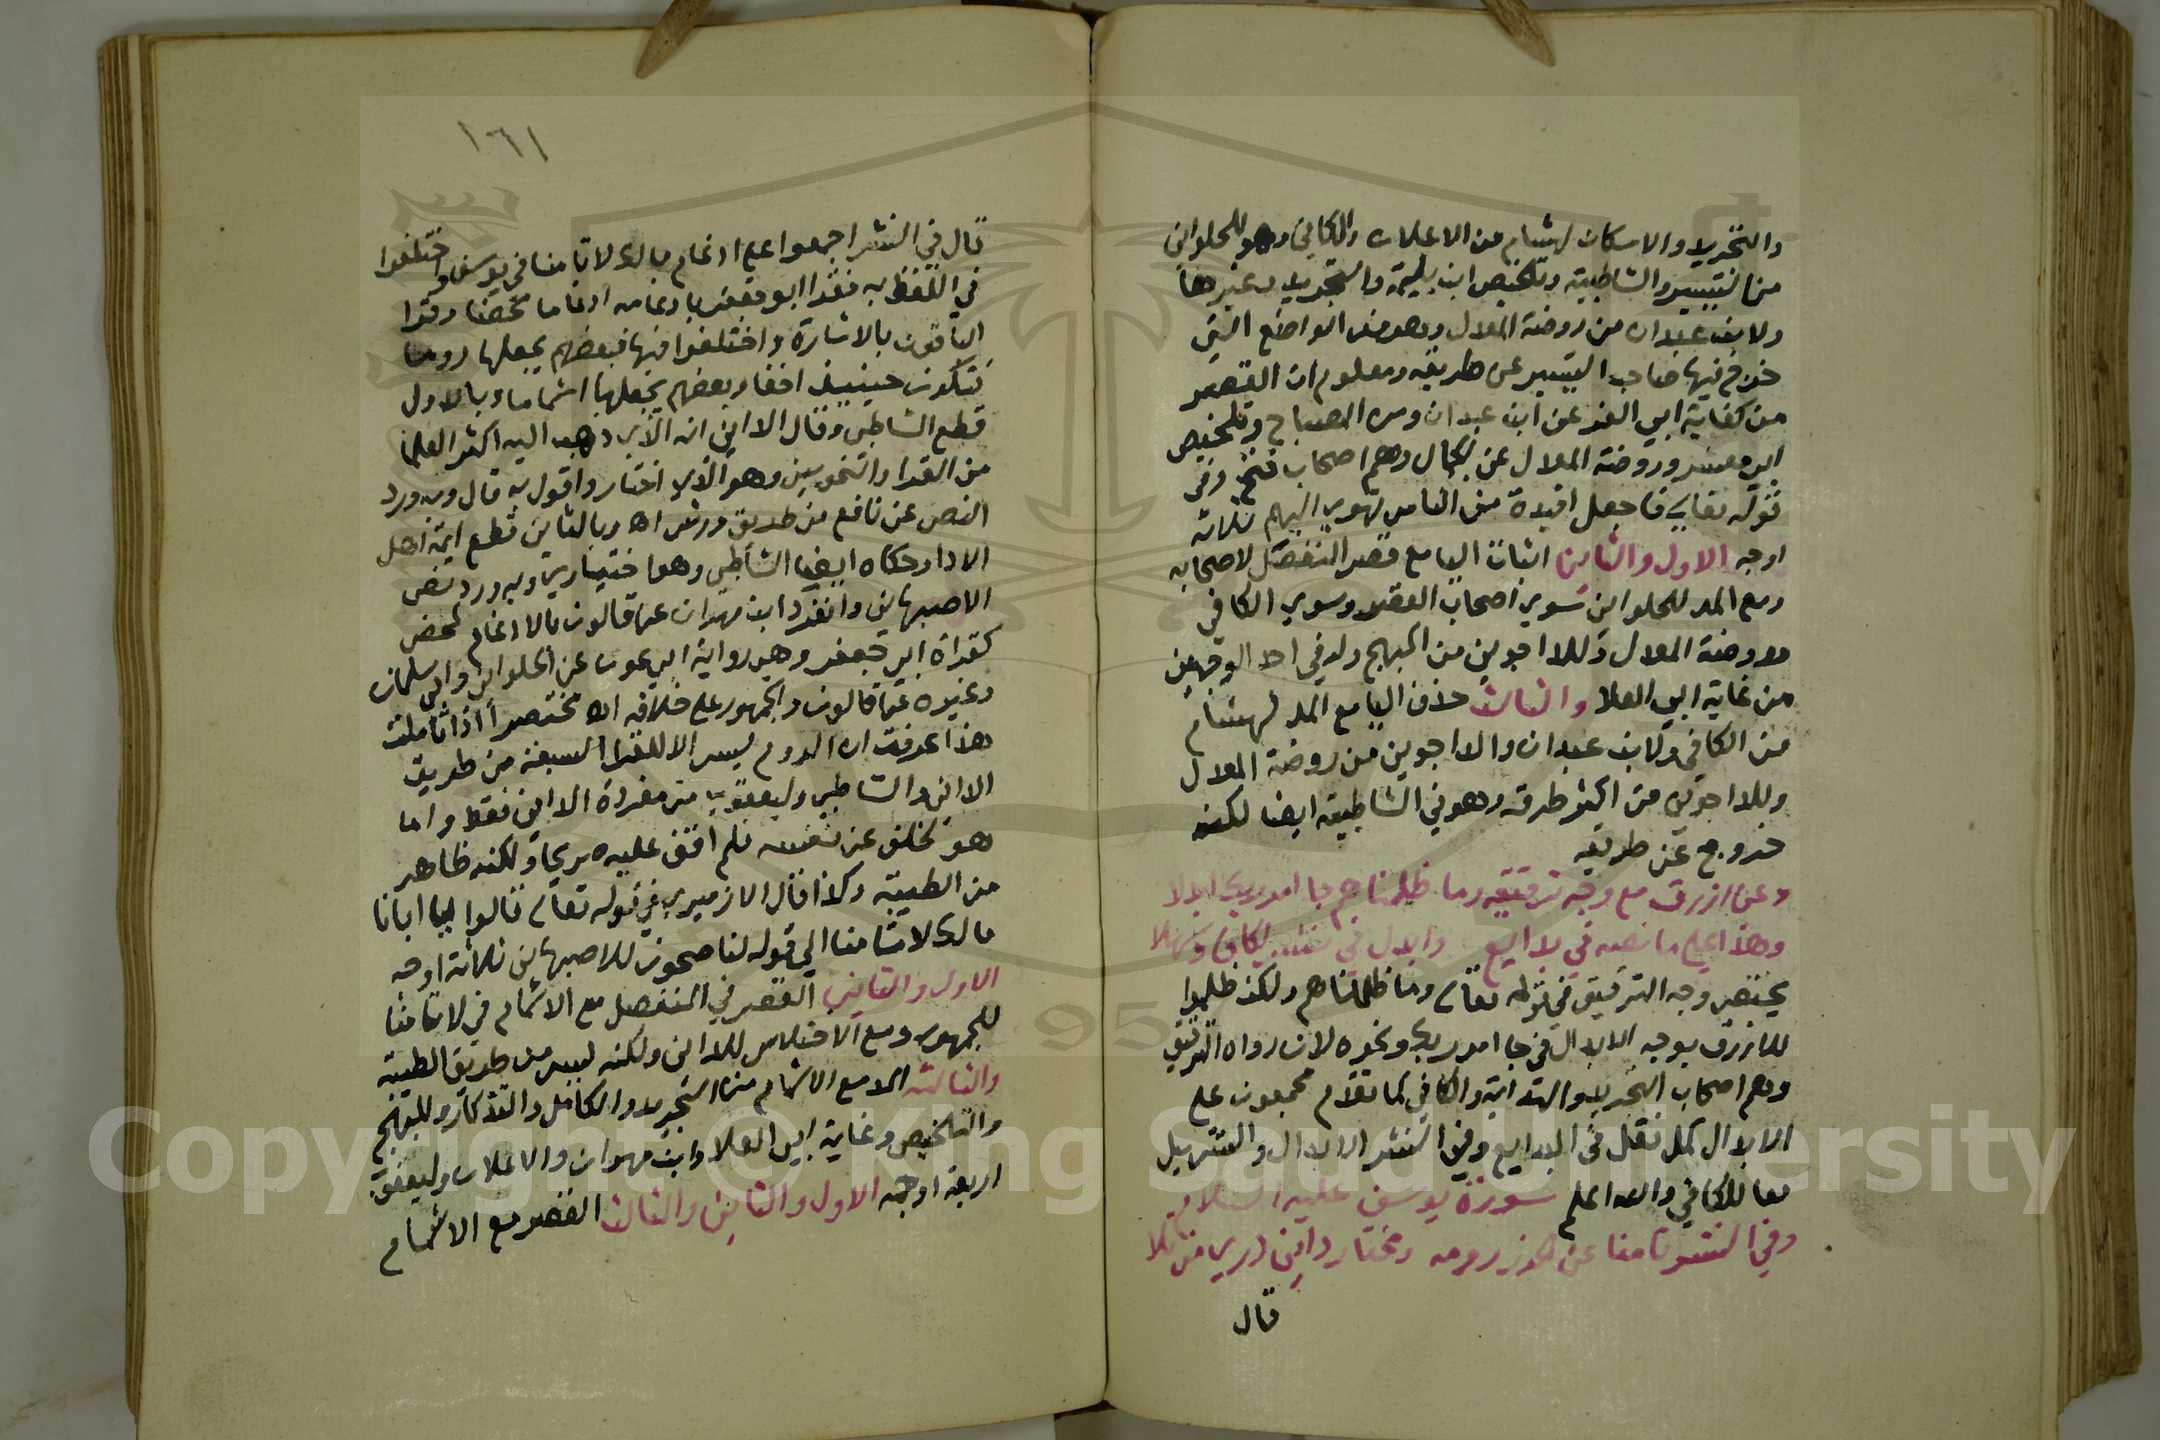 والتجريد والاسكان لهشام من الاعلان والكافي وهو للحلواني
من التيسير والشاطبية وتلخيص ابن بليمة والتجريد وغيرها
ولابن عبدان من روضة المعدل وهو من المواضع التي
خرج فيها صاحب التيسير عن طريقه ومعلوم ان القصر
من كفاية ابي العز عن ابن عبدان ومن المصباح وتلخيص
ابي معشر وروضة المعدل عن الجمال وهم اصحاب فتح وفي
قوله تعالى فاجعل افيدة من الناس تهوي اليهم ثلاثة
اوجه الاول والثاني اثبات اليا مع قصر المنفصل لاصحابه
ومع المد للحلواني سوى اصحاب القصر وسوى الكافي
وروضة المعدل وللداجوني من المبهج وله في احد الوجهين
من غاية ابي العلا والثالث حذف اليا مع المد لهشام
من الكافي ولابن عبدان والداجوني من روضة المعدل
وللداجوني من اكثر طرقه وهو في الشاطبية ايضا لكنه
خروج عن طريقه
وعن ازرق مع وجه ترقيقه وما ظلمناهم جا امر ربك ابدلا
وهذا على ما نصه في بدائع وابدل في نشر لكاف وسهلا
يختص وجه الترقيق في قوله تعالى وما ظلمناهم ولكن ظلموا
للازرق بوجه الابدال في جا امر ربك ونحوه لان رواة الترقيق
وهم اصحاب التجريد والهداية والكافي كما تقدم مجمعون على
الابدال كما نقل في البدايع وفي النشر الابدال والتسهيل
معا للكافي والله اعلم سورة يوسف عليه السلام
وفي النشر تامنا عن الحرز رومه ومختار داني
قال
١٦١
قال في النشر اجمعوا على ادغام مالك لا تامنا في يوسف واختلفوا
في اللفظ به فقرا ابو جعفر بادغامه ادغاما محضا وقرا
الباقون بالاشارة واختلفوا فيها فبعضهم يجعلها روما
فتكون حينيذ اخفا وبعضهم يجعلها اشماما وبالاول
قطع الشاطبي وقال الداني انه الذي ذهب اليه اكثر العلما
من القرا والنحويين وهو الذي اختار واقول به قال وبه ورد
النص عن نافع من طريق ورش اه وبالثاني قطع ايمة اهل
الادا وحكاه ايضا الشاطبي وهو اختياري وبه ورد نص
الاصبهاني وانفرد ابن مهران عن قالون بالادغام المحض
كقراة ابي جعفر وهي رواية ابي عون عن الحلواني وابي سليمان
وغيره عن قالون والجمهور على خلافه اه مختصرا اذا تاملت
هذا عرفت ان الروم ليس الا للقرا السبعة من طريق
الداني والشاطبي وليعقوب من مفردة الداني فقط واما
هو لخلف عن نفسه فلم اقف عليه صريحا ولكنه ظاهر
من الطيبة وكذا قال الازميري في قوله تعالى قالوا يا ابانا
مالك لا تامنا الى قوله لناصحون للاصبهاني ثلاثة اوجه
الاول والثاني القصر في المنفصل مع الاشمام في لا تامنا
للجمهور ومع الاختلاس للداني ولكنه ليس من طريق الطيبة
والثالث المد مع الاشمام من التجريد والكامل والتذكار والمبهج
والتلخيص وغاية ابي العلا وابن مهران والاعلان وليعقوب
اربعة اوجه الاول والثاني والثالث القصر مع الاشمام
Copyright © King Saud University